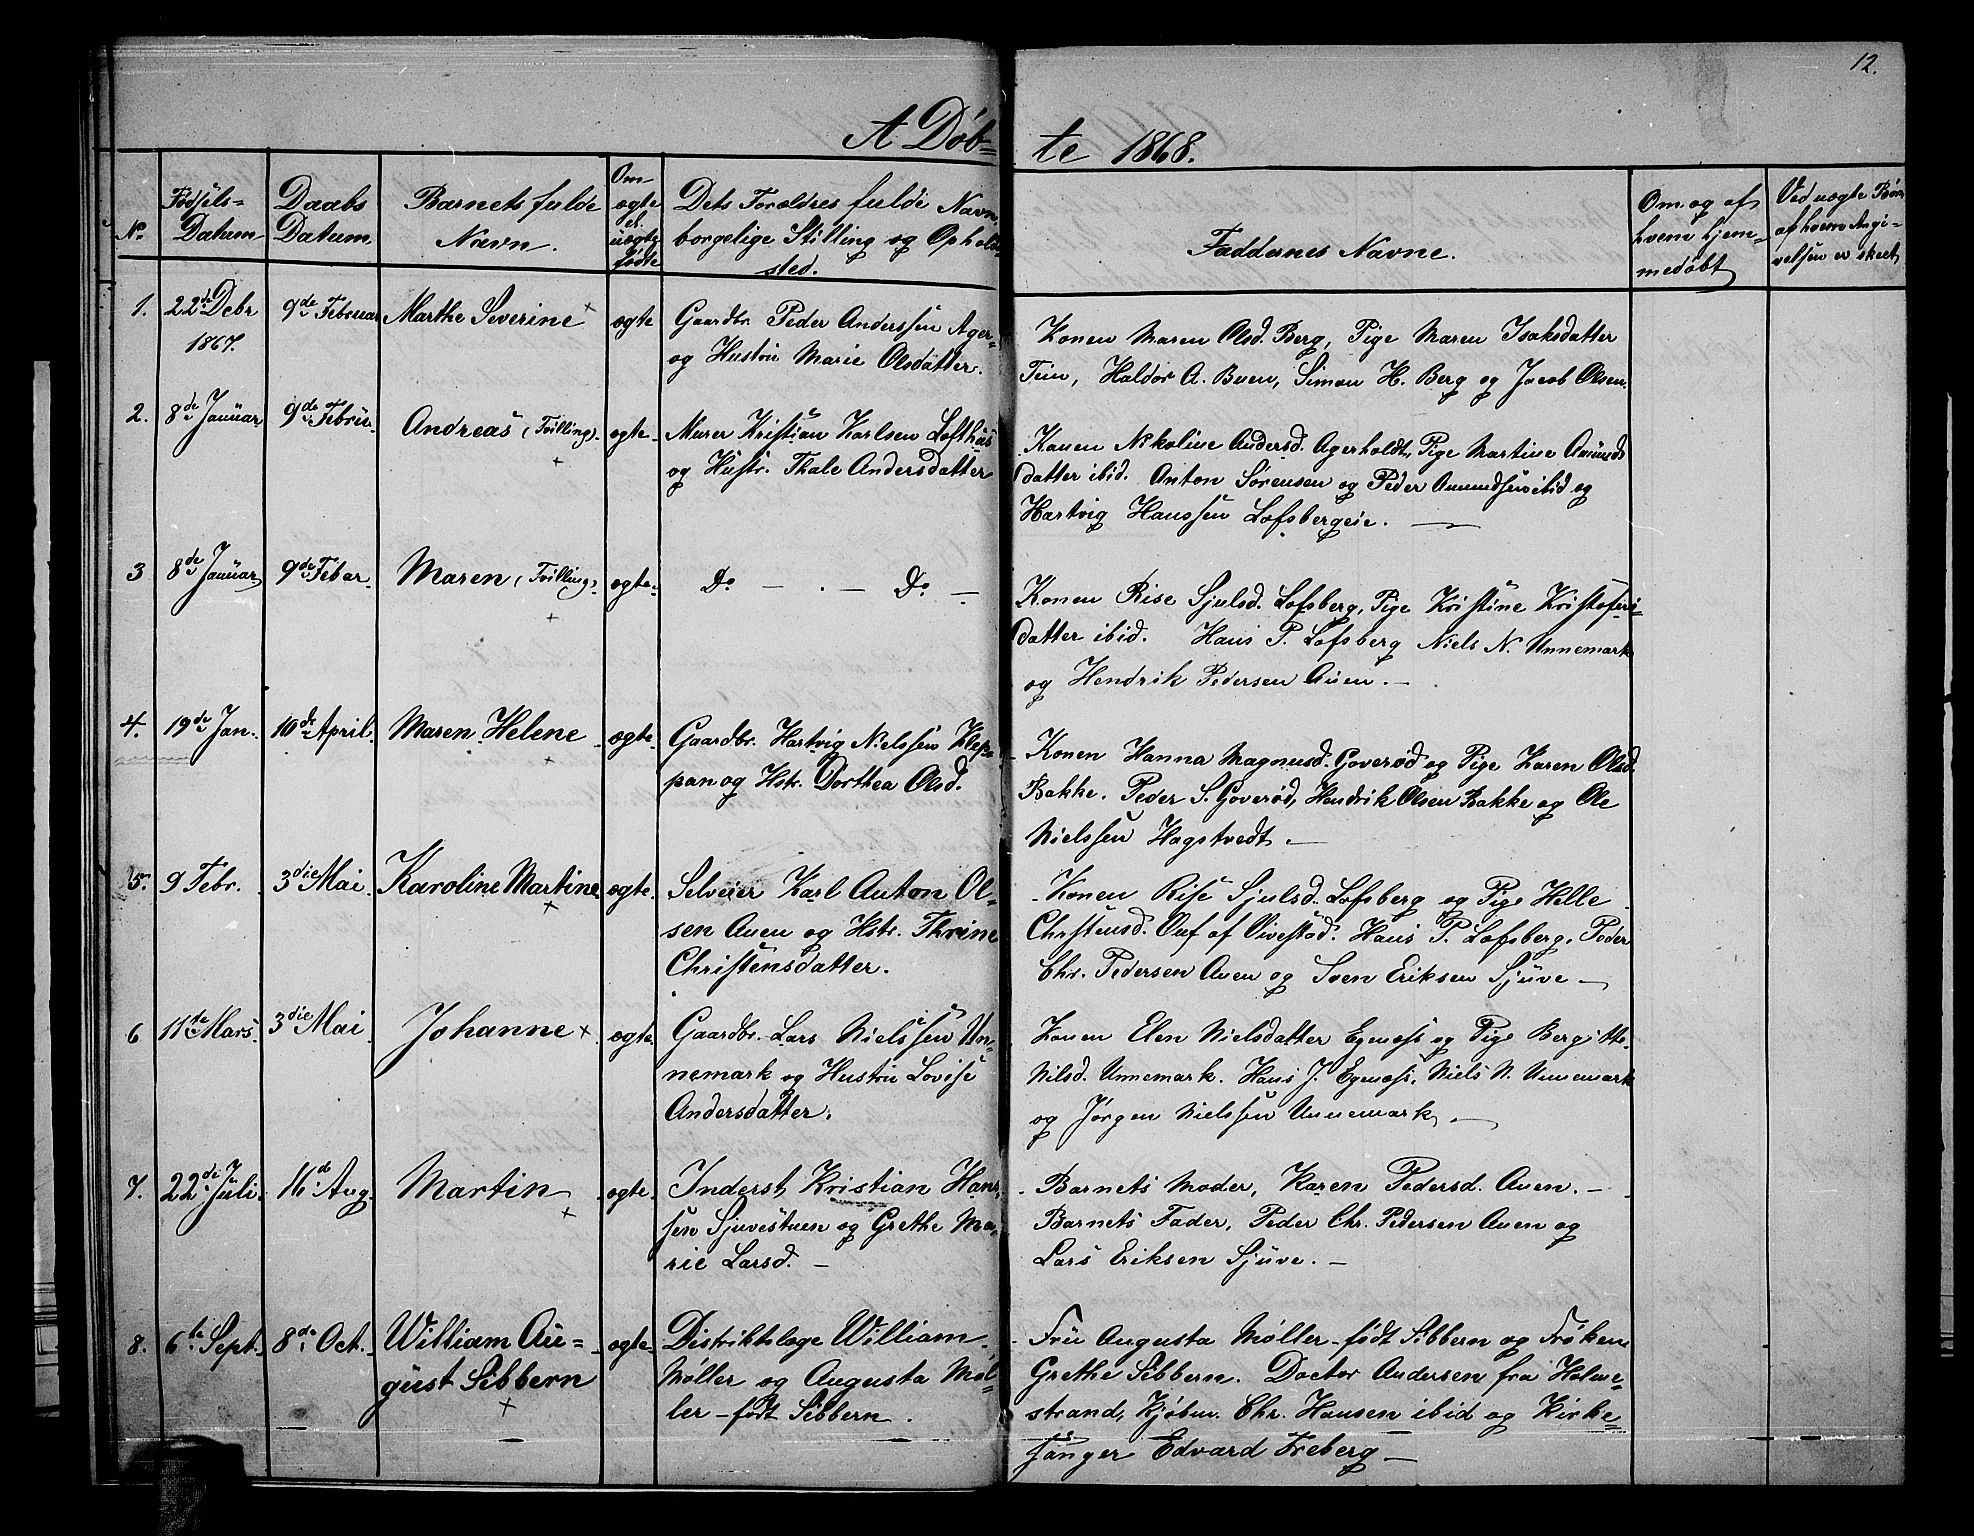 12.
A Døb=
te 1868.
No
Fødsels=
Datum
Daabs
Datum.
Barnets fulde
Navn.
Om
ægte
el.
uægte
fødte
Dets Forældres fulde Navn,
borgelige Stilling og Opholds-
sted.
Faddernes Navne.
Om og af
hvem hjem-
medøbt
Ved uægte Børn
af hvem Angi-
velsen er skeet
1. 22de Debr 9de Februar Marthe Severine + ægte Gaardbr. Peder Anderssen Ager-
1867. og Hustru Marie Olsdatter.
Konen Maren Olsd. Berg, Pige Maren Isaksdatter
Tein, Haldor A. Buen, Simon H. Berg og Jacob Olsen.
2. 8de Januar 9de Februr. Andreas (Tvilling). ægte. Murer Kristian Karlsen Lofthus
+ og Hustr. Thale Andersdatter
Konen Nikoline Andersd. Agerholdt, Pige Martine Amunds
datter ibid. Anton Sørensen og Peder Amundsen ibid og
Hartvig Hanssen Lofsbergeie. —
3 8de Januar 9de Febar. Maren (Tvilling). ægte. Do — . — Do —
+
Konen Rise Sjulsd. Lofsberg, Pige Kristine Kristofers-
datter ibid. Hans P. Lofsberg Niels N. Unnemark
og Hendrik Pedersen Auen. —
4. 19de Jan. 10de April. Maren Helene ægte. Gaardbr. Hartvig Nielssen Klep-
+ pan og Hstr. Dorthea Olsd.
Konen Hanna Magnusd. Goverød og Pige Karen Olsd.
Bakke. Peder S. Goverød, Hendrik Olsen Bakke og Ole
Nielssen Hagstvedt. —
5. 9 Febr. 3die Mai. Karoline Martine ægte. Selveier Karl Anton Ol-
+ sen Auen og Hstr. Thrine
Christensdatter.
Konen Rise Sjulsd. Lofsberg og Pige Helle
Christensd. Ouf af Vivestad. Hans P. Lofsberg. Peder
Chr. Pedersen Auen og Sven Eriksen Sjuve —
6 11te Mars. 3die Mai. Johanne + ægte. Gaardbr. Lars Nielssen Un-
nemark og Hustru Lovise
Andersdatter.
Konen Elen Nielsdatter Egenæss og Pige Bergitte
Nilsd. Unnemark. Hans J. Egenæss, Niels N. Unnemark
og Jørgen Nielssen Unnemark. —
7. 22de Juli. 16d Aug. Martin ægte. Inderst Kristian Hans-
+ sen Sjuvestuen og Grethe Ma-
rie Larsd. —
Barnets Moder, Karen Pedersd. Auen. —
Barnets Fader, Peder Chr. Pedersen Auen og
Lars Eriksen Sjuve. —
8. 6te Sept. 8de Oct. William Au= ægte. Distriktslæge William
gust Sibbern Møller og Augusta Møl-
+ ler — født Sibbern.
Fru Augusta Møller — født Sibbern og Frøken
Grethe Sibbern. Doctor Andersen fra Holme-
strand, Kjøbm. Chr. Hansen ibid og Kirke-
sanger Edvard Freberg —